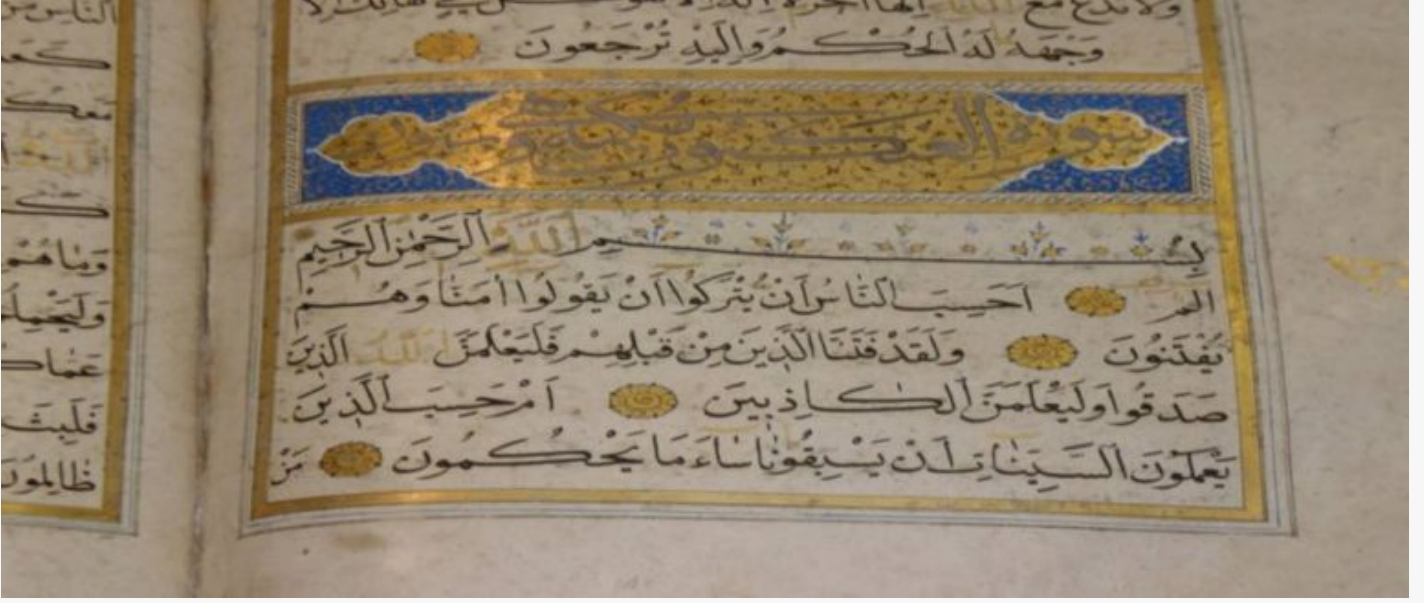 ولا تدع مع الله الها آخر لا اله الا هو كل شيء هالك الا
وَجْهَهُ لَهُ الْحُكْمُ وَاِلَيْهِ تُرْجَعُونَ
سورة العنكبوت
بِسْمِ اللّٰهِ الرَّحْمٰنِ الرَّحِيمِ
الم اَحَسِبَ النَّاسُ اَنْ يُتْرَكُوا اَنْ يَقُولُوا اٰمَنَّا وَهُمْ
يُفْتَنُونَ وَلَقَدْ فَتَنَّا الَّذِينَ مِنْ قَبْلِهِمْ فَلَيَعْلَمَنَّ اللّٰهُ الَّذِينَ
صَدَقُوا وَلَيَعْلَمَنَّ الْكَاذِبِينَ اَمْ حَسِبَ الَّذِينَ
يَعْمَلُونَ السَّيِّئَاتِ اَنْ يَسْبِقُونَا سَاءَ مَا يَحْكُمُونَ مَنْ
الناس
وَمَا هُمْ
فَلَبِثَ
ظَالِمُونَ